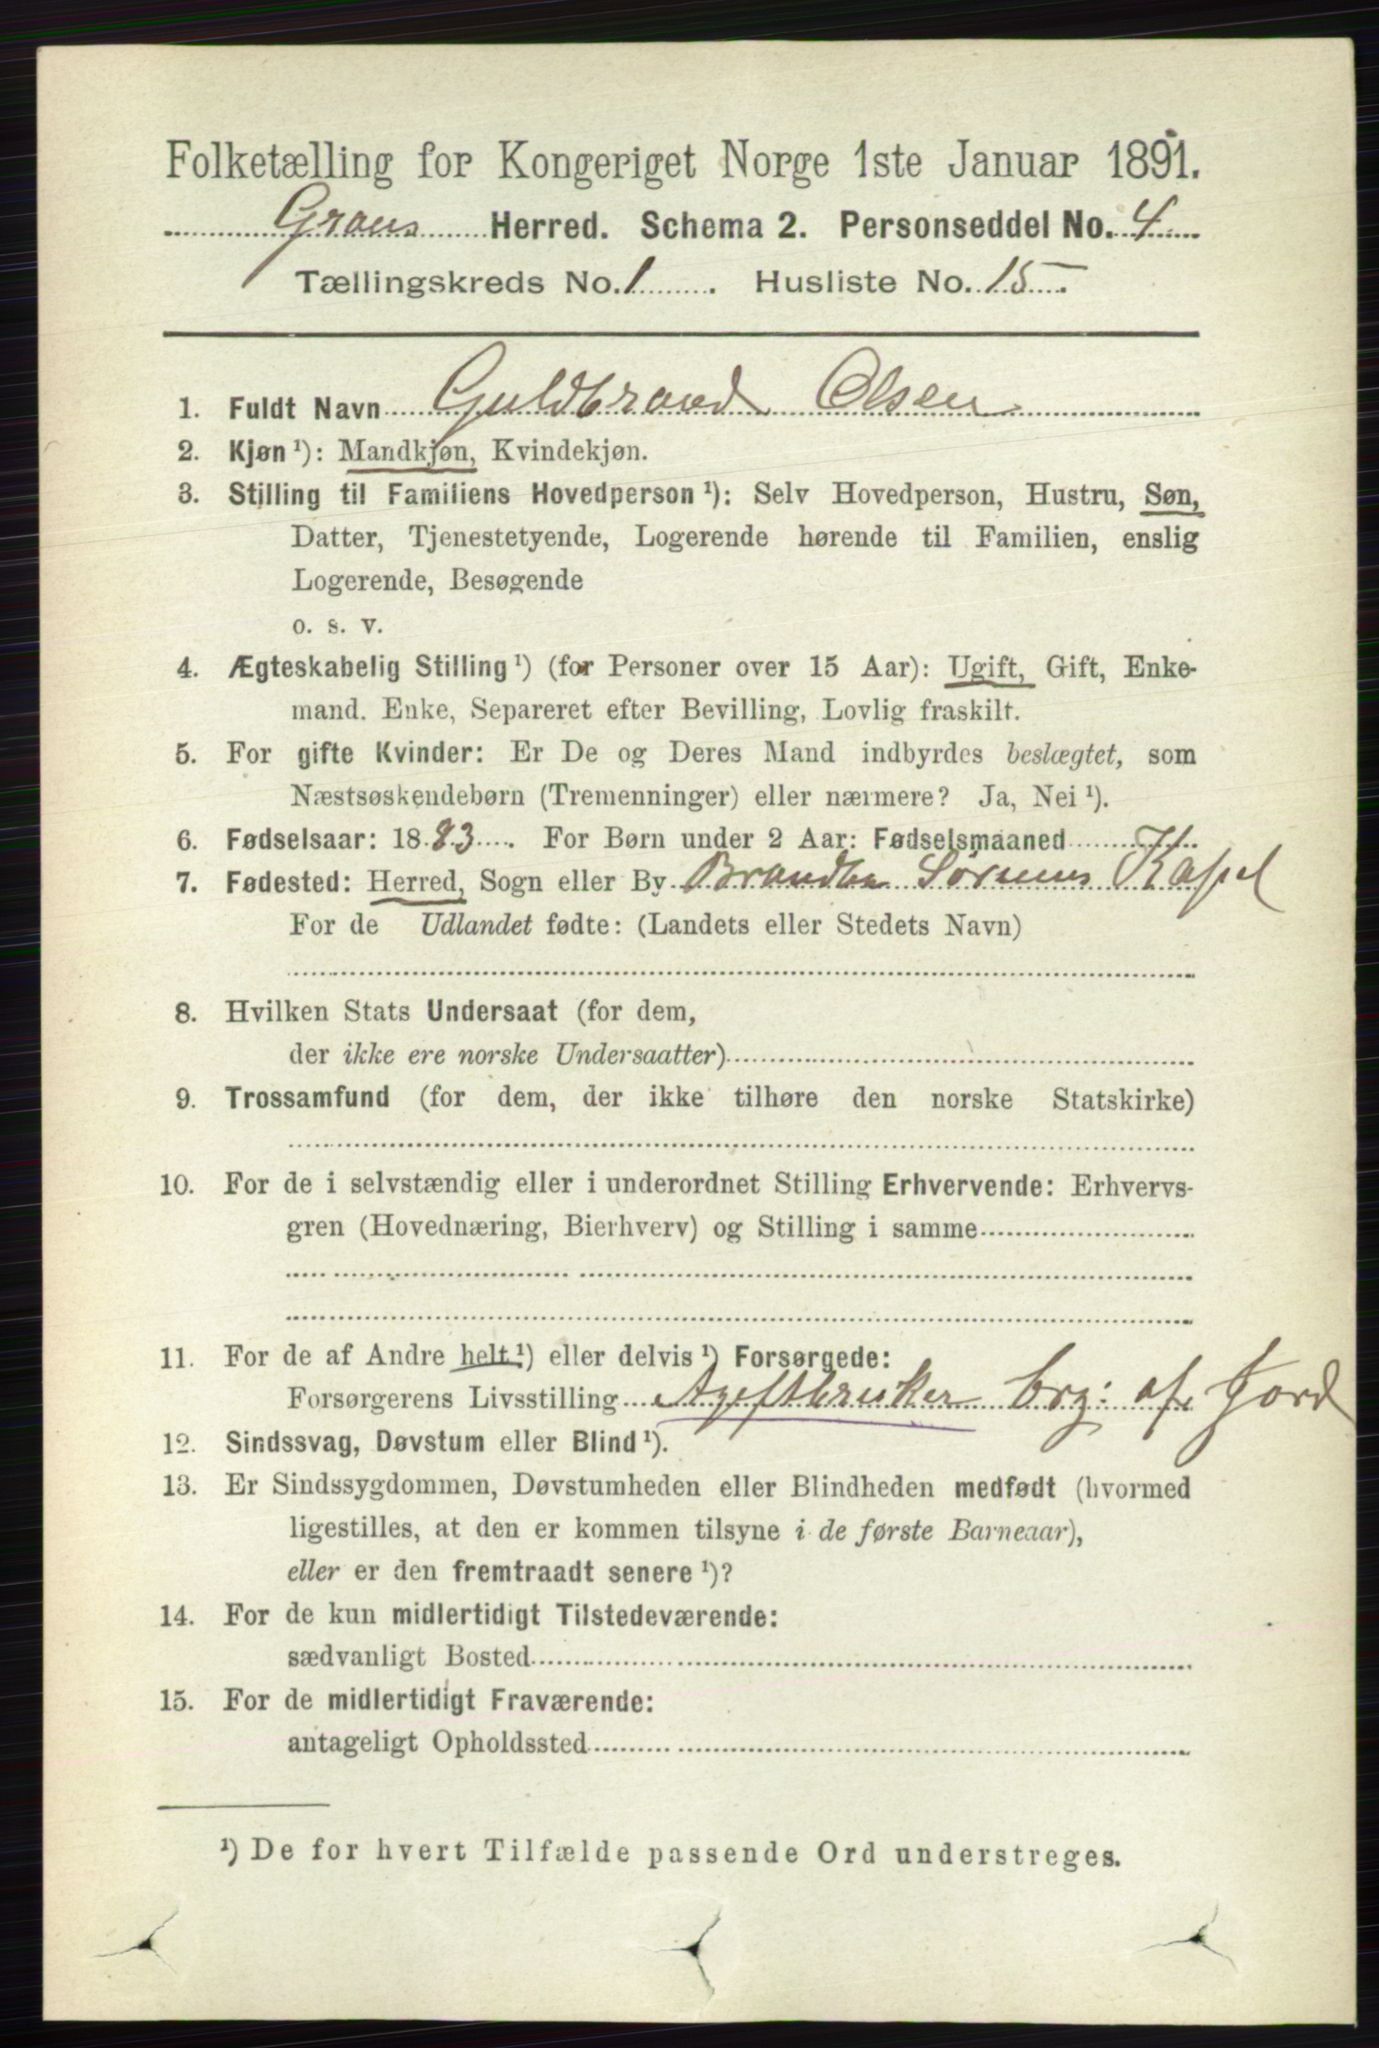 Folketælling for Kongeriget Norge 1ste Januar 1891.
Grans Herred. Schema 2. Personseddel No. 4
Tællingskreds No. 1. Husliste No. 15
1. Fuldt Navn Guldbrand Olsen
2. Kjøn ¹): Mandkjøn, Kvindekjøn.
3. Stilling til Familiens Hovedperson ¹): Selv Hovedperson, Hustru, Søn,
Datter, Tjenestetyende, Logerende hørende til Familien, enslig
Logerende, Besøgende
o. s. v.
4. Ægteskabelig Stilling ¹) (for Personer over 15 Aar): Ugift, Gift, Enke-
mand. Enke, Separeret efter Bevilling, Lovlig fraskilt.
5. For gifte Kvinder: Er De og Deres Mand indbyrdes beslægtet, som
Næstsøskendebørn (Tremenninger) eller nærmere? Ja, Nei ¹).
6. Fødselsaar: 1883. For Børn under 2 Aar: Fødselsmaaned
7. Fødested: Herred, Sogn eller By Brandbu Kapel
For de Udlandet fødte: (Landets eller Stedets Navn)
8. Hvilken Stats Undersaat (for dem,
der ikke ere norske Undersaatter)
9. Trossamfund (for dem, der ikke tilhøre den norske Statskirke)
10. For de i selvstændig eller i underordnet Stilling Erhvervende: Erhvervs-
gren (Hovednæring, Bierhverv) og Stilling i samme
11. For de af Andre helt ¹) eller delvis ¹) Forsørgede:
Forsørgerens Livsstilling af Jord
12. Sindssvag, Døvstum eller Blind ¹).
13. Er Sindssygdommen, Døvstumheden eller Blindheden medfødt (hvormed
ligestilles, at den er kommen tilsyne i de første Barneaar),
eller er den fremtraadt senere ¹)?
14. For de kun midlertidigt Tilstedeværende:
sædvanligt Bosted
15. For de midlertidigt Fraværende:
antageligt Opholdssted
¹) De for hvert Tilfælde passende Ord understreges.